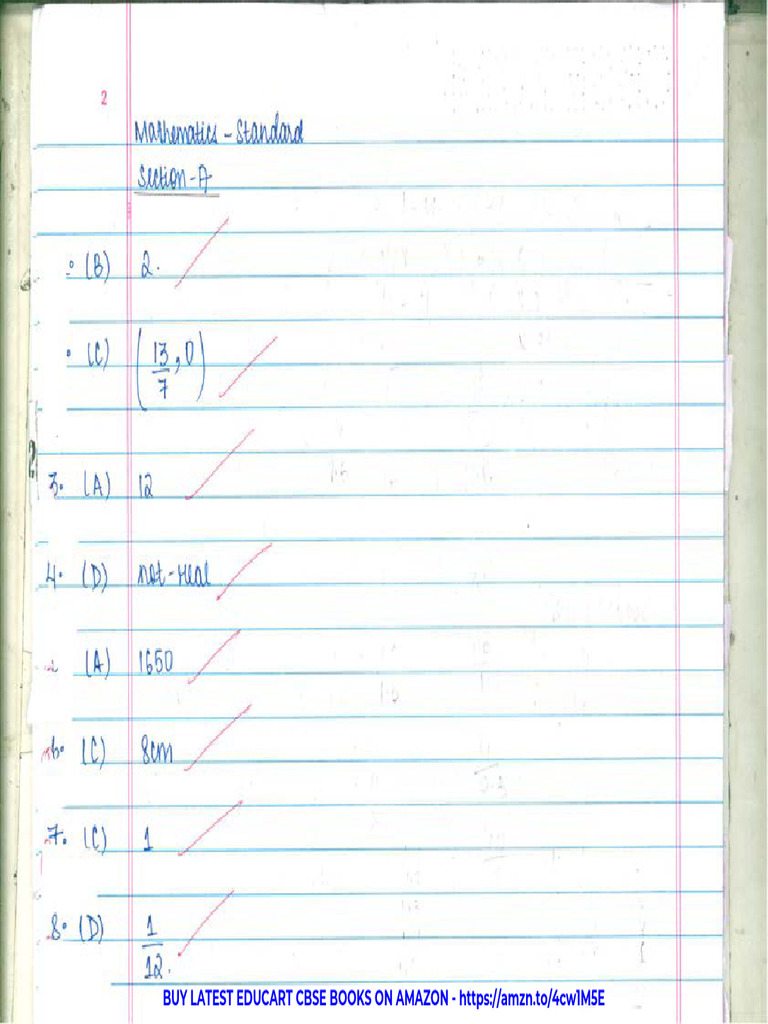 2
Mathematics - Standard
Section - A
(B) 2.
(C) (13/7, 0)
3. (A) 12
4. (D) not-real
(A) 1650
6. (C) 8cm
7. (C) 1
8. (D) 1/12.
BUY LATEST EDUCART CBSE BOOKS ON AMAZON - https://amzn.to/4cw1M5E